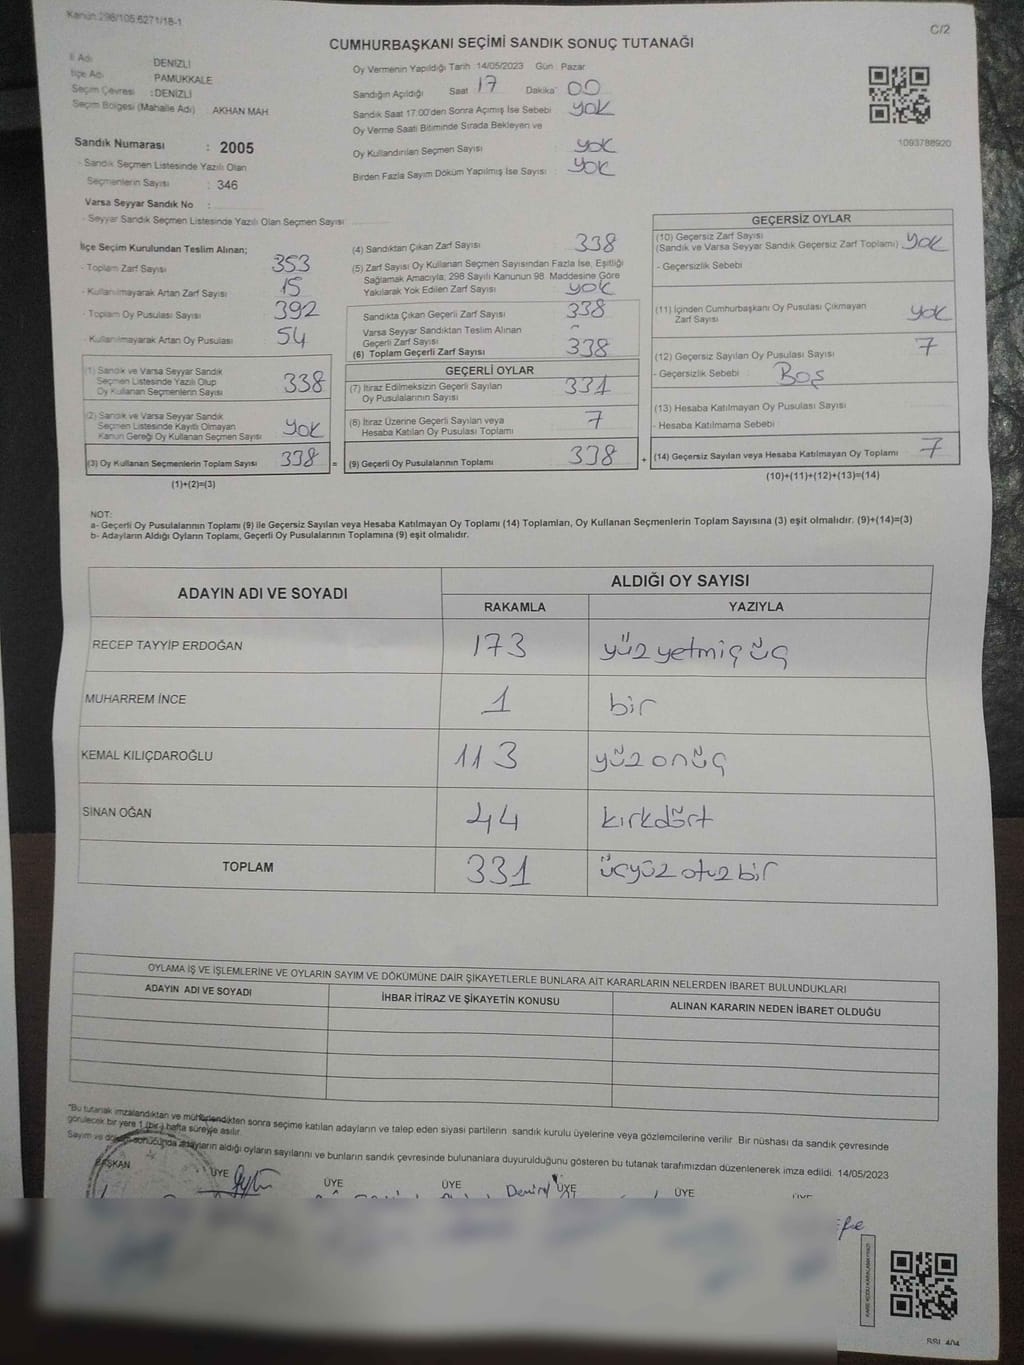 Kanun:298/105.6271/18-1
C/2
CUMHURBAŞKANI SEÇİMİ SANDIK SONUÇ TUTANAĞI
İl Adı DENİZLİ
İlçe Adı PAMUKKALE
Seçim Çevresi :DENİZLİ
Seçim Bölgesi (Mahalle Adı) AKHAN MAH
Sandık Numarası : 2005
- Sandık Seçmen Listesinde Yazılı Olan
Seçmenlerin Sayısı : 346
Varsa Seyyar Sandık No :
- Seyyar Sandık Seçmen Listesinde Yazılı Olan Seçmen Sayısı
Oy Vermenin Yapıldığı Tarih :14/05/2023 Gün : Pazar
Sandığın Açıldığı Saat 17 Dakika 00
Sandık Saat 17:00'den Sonra Açımış İse Sebebi yok
Oy Verme Saati Bitiminde Sırada Bekleyen ve
Oy Kullandırılan Seçmen Sayısı : yok
Birden Fazla Sayım Döküm Yapılmış İse Sayısı : yok
1093788920
İlçe Seçim Kurulundan Teslim Alınan;
- Toplam Zarf Sayısı 353
- Kullanılmayarak Artan Zarf Sayısı 15
- Toplam Oy Pusulası Sayısı 392
- Kullanılmayarak Artan Oy Pusulası 54
(1) Sandık ve Varsa Seyyar Sandık
Seçmen Listesinde Yazılı Olup
Oy Kullanan Seçmenlerin Sayısı 338
(2) Sandık ve Varsa Seyyar Sandık
Seçmen Listesinde Kayıtlı Olmayan
Kanun Gereği Oy Kullanan Seçmen Sayısı yok
(3) Oy Kullanan Seçmenlerin Toplam Sayısı 338 =
(1)+(2)=(3)
(4) Sandıktan Çıkan Zarf Sayısı 338
(5) Zarf Sayısı Oy Kullanan Seçmen Sayısından Fazla İse, Eşitliği
Sağlamak Amacıyla, 298 Sayılı Kanunun 98. Maddesine Göre
Yakılarak Yok Edilen Zarf Sayısı yok
Sandıkta Çıkan Geçerli Zarf Sayısı 338
Varsa Seyyar Sandıktan Teslim Alınan
Geçerli Zarf Sayısı
(6) Toplam Geçerli Zarf Sayısı 338
GEÇERLİ OYLAR
(7) İtiraz Edilmeksizin Geçerli Sayılan
Oy Pusulalarının Sayısı 331
(8) İtiraz Üzerine Geçerli Sayılan veya
Hesaba Katılan Oy Pusulası Toplamı 7
(9) Geçerli Oy Pusulalarının Toplamı 338 +
GEÇERSİZ OYLAR
(10) Geçersiz Zarf Sayısı
(Sandık ve Varsa Seyyar Sandık Geçersiz Zarf Toplamı) yok
- Geçersizlik Sebebi
(11) İçinden Cumhurbaşkanı Oy Pusulası Çıkmayan
Zarf Sayısı yok
(12) Geçersiz Sayılan Oy Pusulası Sayısı 7
- Geçersizlik Sebebi : Boş
(13) Hesaba Katılmayan Oy Pusulası Sayısı
- Hesaba Katılmama Sebebi
(14) Geçersiz Sayılan veya Hesaba Katılmayan Oy Toplamı 7
(10)+(11)+(12)+(13)=(14)
NOT:
a- Geçerli Oy Pusulalarının Toplamı (9) ile Geçersiz Sayılan veya Hesaba Katılmayan Oy Toplamı (14) Toplamları, Oy Kullanan Seçmenlerin Toplam Sayısına (3) eşit olmalıdır. (9)+(14)=(3)
b- Adayların Aldığı Oyların Toplamı, Geçerli Oy Pusulalarının Toplamına (9) eşit olmalıdır.
ADAYIN ADI VE SOYADI
ALDIĞI OY SAYISI
RAKAMLA YAZIYLA
RECEP TAYYİP ERDOĞAN 173 yüz yetmiş üç
MUHARREM İNCE 1 bir
KEMAL KILIÇDAROĞLU 113 yüz onüç
SİNAN OĞAN 44 kırkdört
TOPLAM 331 üçyüz otuz bir
OYLAMA İŞ VE İŞLEMLERİNE VE OYLARIN SAYIM VE DÖKÜMÜNE DAİR ŞİKAYETLERLE BUNLARA AİT KARARLARIN NELERDEN İBARET BULUNDUKLARI
ADAYIN ADI VE SOYADI İHBAR İTİRAZ VE ŞİKAYETİN KONUSU ALINAN KARARIN NEDEN İBARET OLDUĞU
"Bu tutanak imzalandıktan ve mühürlendikten sonra seçime katılan adayların ve talep eden siyasi partilerin sandık kurulu üyelerine veya gözlemcilerine verilir. Bir nüshası da sandık çevresinde
görülecek bir yere 1 (bir) hafta süreyle asılır.
Sayım ve döküm sonucunda adayların aldığı oyların sayılarını ve bunların sandık çevresinde bulunanlara duyurulduğunu gösteren bu tutanak tarafımızdan düzenlenerek imza edildi. 14/05/2023
BAŞKAN ÜYE ÜYE ÜYE Demirel ÜYE ÜYE